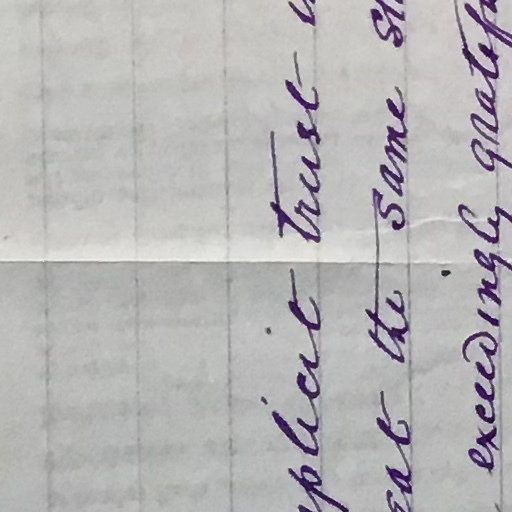 mplicit trust
eat the same
exceedingly gratefu